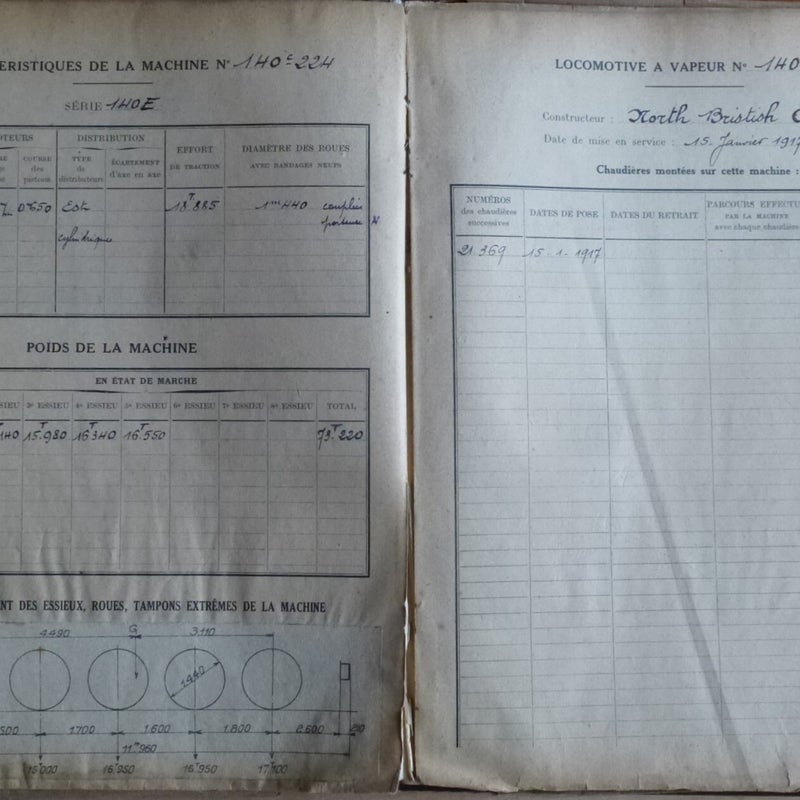 ERISTIQUES DE LA MACHINE N° 140 C 224
SÉRIE 140 E
OTEURS
DISTRIBUTION
EFFORT
DE TRACTION
DIAMÈTRE DES ROUES
AVEC BANDAGES NEUFS
COURSE
des
pistons
TYPE
de
distributeurs
ÉCARTEMENT
d'axe en axe
0m650 Est 18T885 1m440 couplées
porteuse
cylindriques
POIDS DE LA MACHINE
EN ÉTAT DE MARCHE
SIEU 3e ESSIEU 4e ESSIEU 5e ESSIEU 6e ESSIEU 7e ESSIEU 8e ESSIEU TOTAL
140 15T980 16T340 16T550 73T220
NT DES ESSIEUX, ROUES, TAMPONS EXTRÊMES DE LA MACHINE
4.490 G 3.110
1.440
500 1.700 1.600 1.800 2.600
11m960
15T000 16T950 16T950 17T100
LOCOMOTIVE A VAPEUR N° 140
Constructeur : North Bristish C
Date de mise en service : 15 Janvier 1917
Chaudières montées sur cette machine :
NUMÉROS
des chaudières
successives
DATES DE POSE
DATES DU RETRAIT
PARCOURS EFFECTU
PAR LA MACHINE
avec chaque chaudière
21 369 15-1-1917